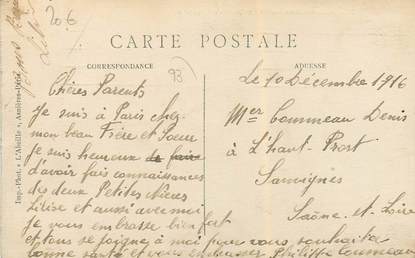 20 6
CARTE POSTALE
CORRESPONDANCE
ADRESSE
93
Imp.-Phot. « L'Abeille », Asnières-Paris
Chères Parents
je suis à Paris chez
mon beau Frère et Sœur
je suis heureux de faire
d'avoir fais connaissances
des deux Petites Nièces
et aussi avec moi
je vous embrasse bien fort
et tous se joigne à moi pour vous souhaiter
bonne santé et vous embrasser Philippe Coumeau
Le 10 Décembre 1916
Mer Coumeau Denis
à L'haut-Prost
Savignés
Saône-et-Loire